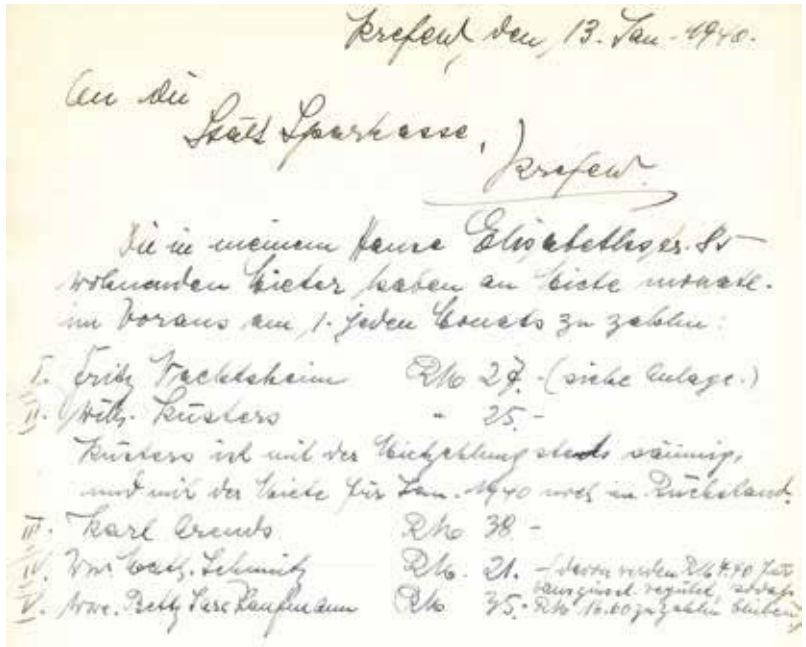 Krefeld, den 13. Jan. 1940.
An die
Städt Sparkasse,
Krefeld.
Die in meinem Hause Elisabethstr. 85
wohnenden Mieter haben an Miete monatl.
im Voraus am 1. jeden Monats zu zahlen:
I. Fritz Nachtsheim RM 27.- (siehe Anlage.)
II. Wilh. Küsters " 25.-
Küsters ist mit der Mietzahlung stets säumig,
und mit der Miete für Jan. 1940 noch im Rückstand.
III. Karl Arends RM 38 -
IV. Wwe Cath. Schmitz RM. 21. - (davon werden RM 4.40 für
Hausreinig. vergütet, sodaß
V. Wwe. Betty Sara Kaufmann RM 35.- RM 16.60 zu zahlen bleiben)